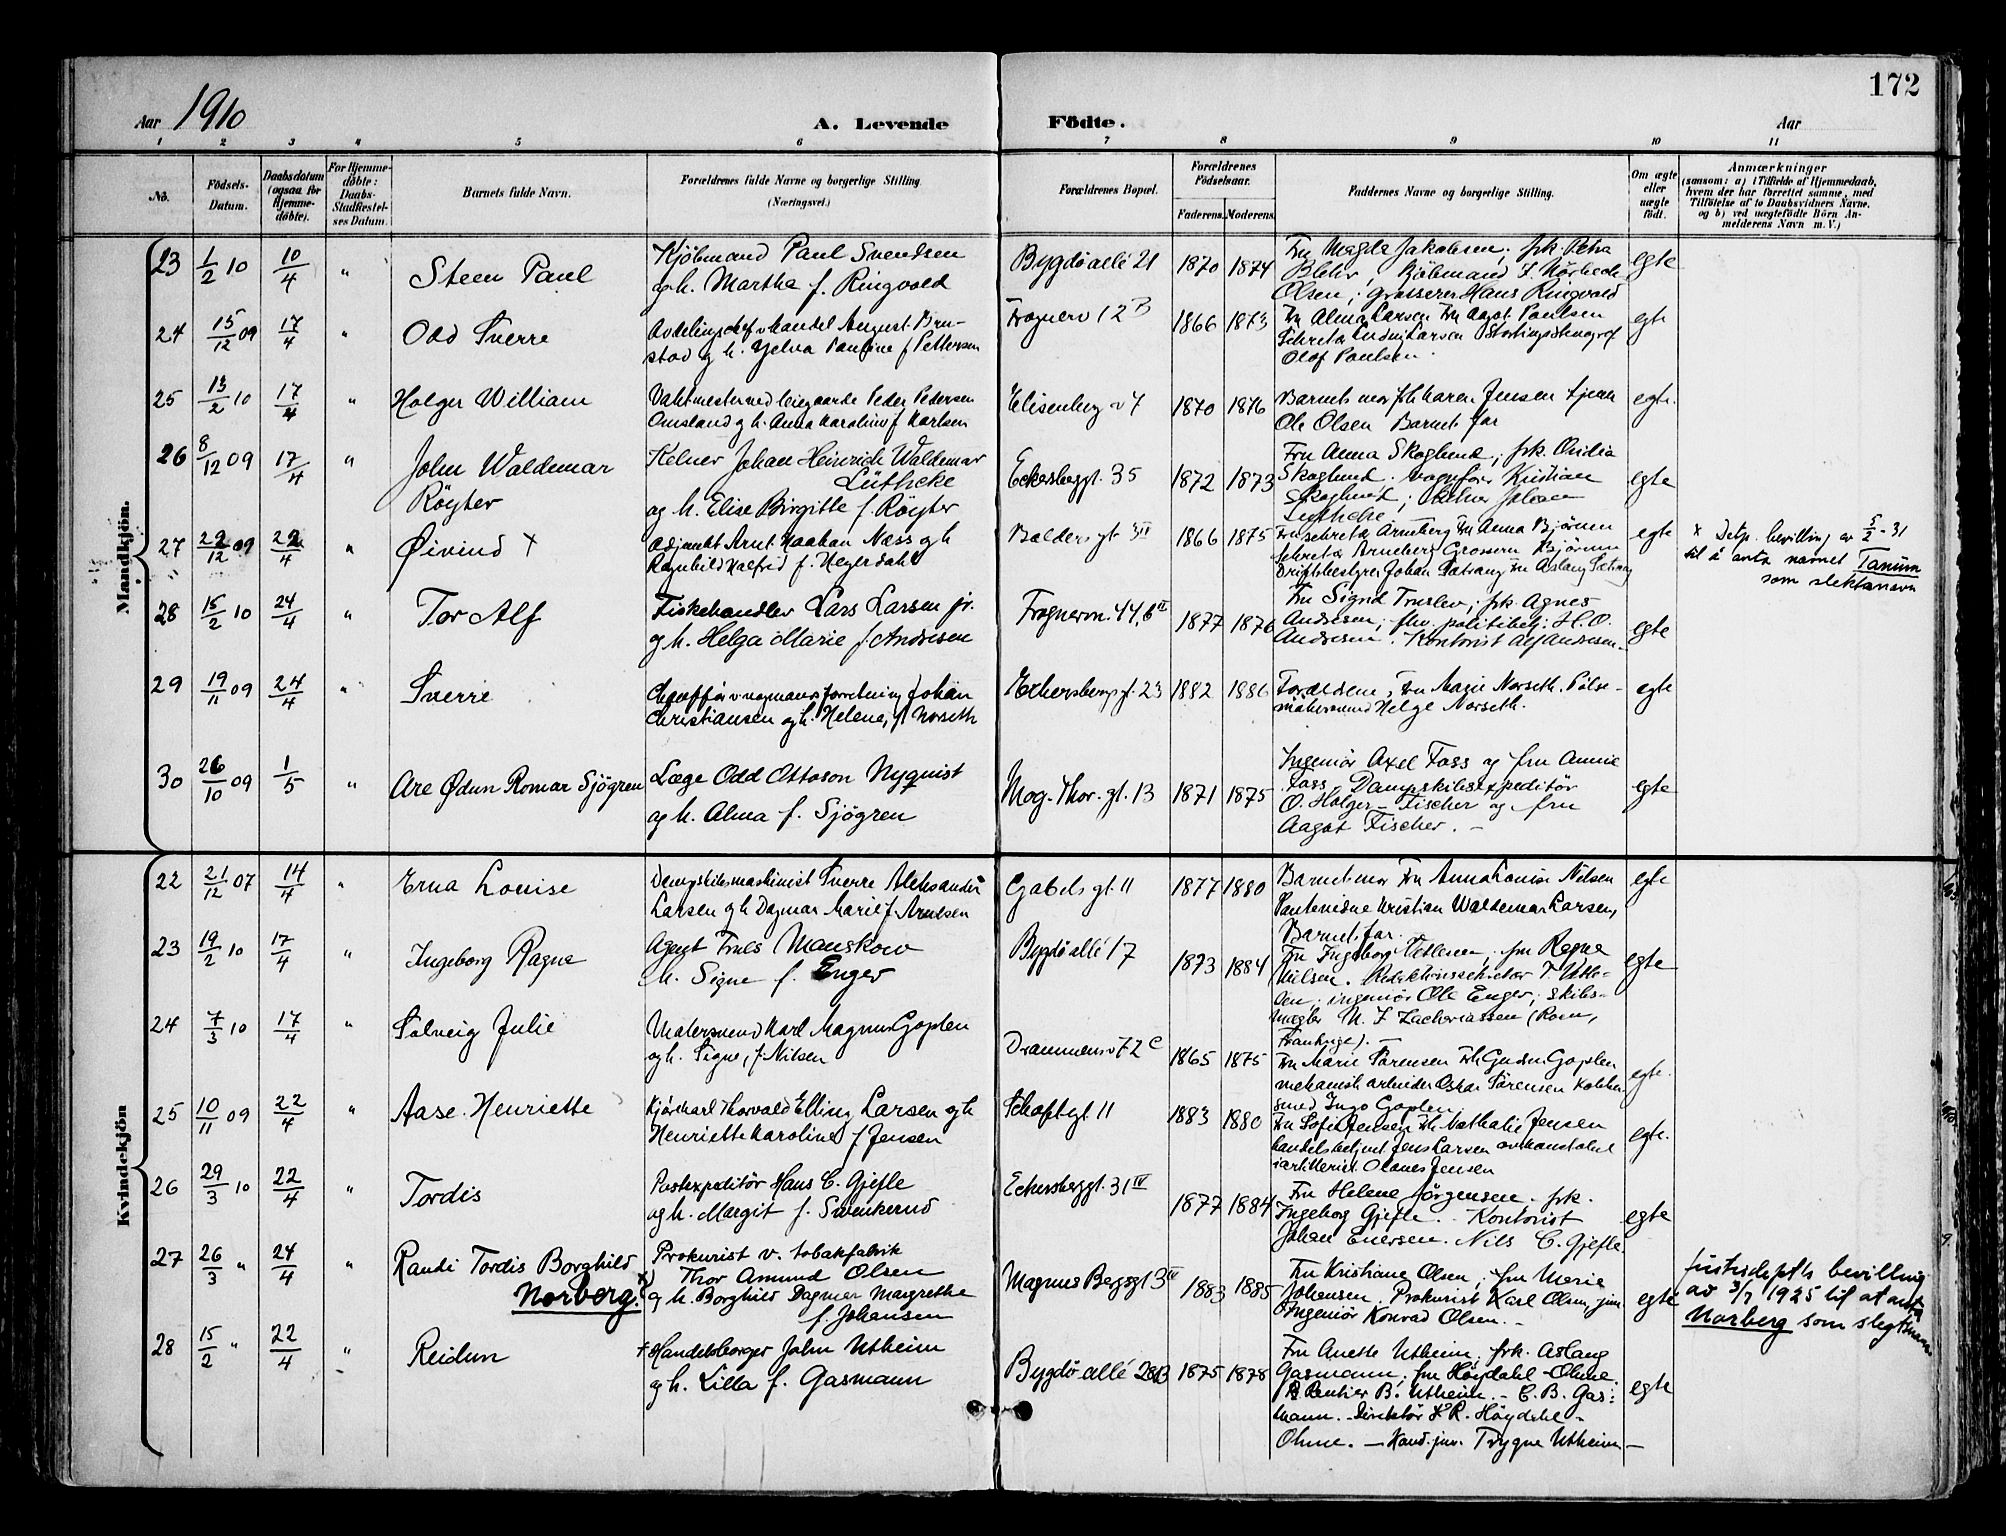 172
Aar 1910
A. Levende Födte.
Aar
1 2 3 4 5 6 7 8 9 10 11
No.
Födsels-Datum.
Daabsdatum (ogsaa for Hjemme-døbte).
For Hjemme-døbte: Daabs-Stadfæstel-ses Datum.
Barnets fulde Navn.
Forældrenes fulde Navne og borgerlige Stilling.
(Næringsvei.)
Forældrenes Bopæl.
Forældrenes Födselsaar.
Faderens. Moderens.
Faddernes Navne og borgerlige Stilling.
Om ægte eller uægte født.
Anmærkninger
(saasom: a) i Tilfælde af Hjemmedaab,
hvem der har forrettet samme, med
Tilføielse af to Daabsvidners Navne,
og b) ved uægtefødte Börn An-
melderens Navn m. V.)
Mandkjön.
23 1/2 10 10/4 " Steen Paul
Kjöbmand Paul Svendsen
og h. Martha f. Ringvold
Bygdö allé 21 1870 1874
Fru Magda Jakobsen; frk. Petra
Blehr, Kjöbmand
Olsen; grosserer Hans Ringvold
egte
24 15/12 09 17/4 " Odd Sverre
Avdelingschef v handel August Bru-
stad g h. Yelva Pauline f Pettersen
Frognerv 12 B 1866 1873
Fru Alma Larsen Fru Aagot Paulsen
Sekretær Ludvig Larsen Stortingsstenograf
Olaf Paulsen
egte
25 13/2 10 17/4 " Holger William
Vaktmester ved leiegaarde Peder Pedersen
Omsland g h. Anna Karoline f Karlsen
Elisenberg v 7 1870 1876
Barnets mor frk Karen Jensen tjener
Ole Olsen Barnets far
egte.
26 8/12 09 17/4 " John Waldemar
Röyter
Kelner Johan Heinrich Waldemar
Lüthcke
og h. Elise Birgitte f. Röyter
Eckersbergt. 35 1872 1873
Fru Anna Skoglund; frk. Ovidia
Skoglund. vognfører Kristian
Skoglund; kelner Johan
Luthcke.
egte
27 22/12 09 22/4 " Øivind +
Adjunkt Arnt Haakon Næss g h
Ragnhild Halfrid f. Heyerdahl
Baldersgt 3 II 1866 1875
Fru sekretær Arneberg Fru Anna Bjørum
Sekretær Arneberg Grosserer Bjørum
Driftsbestyrer Johan Sætrang Fru Aslaug Sætrang
egte
x Detp. bevilling av 5/2-31
til å anta navnet Tanum
som slektsnavn
28 15/2 10 24/4 " Tor Alf
Fiskehandler Lars Larsen jr.
og h. Helga Marie f. Andresen
Frognervn. 44, 6 II 1877 1876
Fru Sigrid; frk. Agnes
Andresen; fhv. politibetj. H.O.
Andresen. Kontorist Alf Andresen.
egte
29 19/11 09 24/4 " Sverre
Chauffør v vognmansforretning Johan
Christiansen og h. Helene, f. Norseth
Eckersbergsgt. 23 1882 1886
Forældrene, Fru Marie Norseth. Pølse-
makersvend Helge Norseth.
egte
30 26/10 09 1/5 " Are Ødun Romar Sjögren
Læge Odd Ottoson Nyquist
og h. Alma f. Sjögren
Mog. Thor. gt. 13 1871 1875
Ingeniör Axel Foss og fru Annie
Foss, Dampskibsexpeditör
O. Holger-Fischer og fru
Aagot Fischer. -
egte
Kvindekjön
22 21/12 07 14/4 " Erna Louise
Dampskibsmaskinist Sverre Aleksander
Larsen g h Dagmar Marie f. Arntsen
Gabels gt 11 1877 1880
Barnets mor Fru Anna Louise Nilsen
Kristian Waldemar Larsen,
Barnets far.
egte
23 19/2 10 17/4 " Ingeborg Ragna
Agent Trols Manskow
h. Signe f. Enger
Bygdö allé 17 1873 1884
Fru Ingeborg; fru Ragna
Nilsen. Redaktionssekretær T.
; ingeniör Ole Enger; skibs-
mægler M. F. Zachariassen (Rouen,
Frankrige). -
egte
24 7/3 10 17/4 " Solveig Julie
Malersvend Karl Magnus Goplen
og h. Signe, f. Nilsen
Drammensv 72 c 1865 1875
Fru Marie Sørensen Frk Gudrun Goplen
mekanisk arbeider Oskar Sørensen Kobber-
smed Ingo Goplen
egte.
25 10/11 09 22/4 " Aase-Henriette
Kjørekarl Thorvald Elling Larsen g h
Henriette Karoline f Jensen
Schaftgt 11 1883 1880
Fru Sofie Jensen Frk Nathalie Jensen
handelsbetjent Jens Larsen
artillerist Olanes Jensen
egte.
26 29/3 10 22/4 " Tordis
Postexpeditör Hans C. Gjefle
og h. Margit f. Svenkerud
Eckersbergt. 31 IV 1877 1884
Fru Helene Jörgensen. frk.
Ingeborg Gjefle. - Kontorist
Johan Enersen. Nils C. Gjefle.
egte
27 26/3 " 24/4 " Randi Tordis Borghild
Norberg. x)
Prokurist v. tobakfabrik
Thor Amund Olsen
og h. Borghild Dagmar Margrethe
f. Johansen
Magnus Bergsgt 3 IV 1883 1885
Fru Kristiane Olsen; fru Marie
Johansen. Prokurist Karl Olsen, jun.
Ingeniör Konrad Olsen. -
egte
Justisdepts bevilling
av 3/7 1925 til at anta
Norberg som slegtsnavn
28 15/2 " 22/4 " Reidun
+ Handelsborger John Utheim
og h. Lilla f. Gasmann
Bygdö allé 28B 1875 1878
Fru Anette Utheim; frk. Aslaug
Gasmann; fru Höydahl-Ohme.
Rentier B. Utheim. - C. B. Gas-
mann. - Direktör R. Höydahl-
Ohme. - Hand. juv. Trygve Utheim -
egte